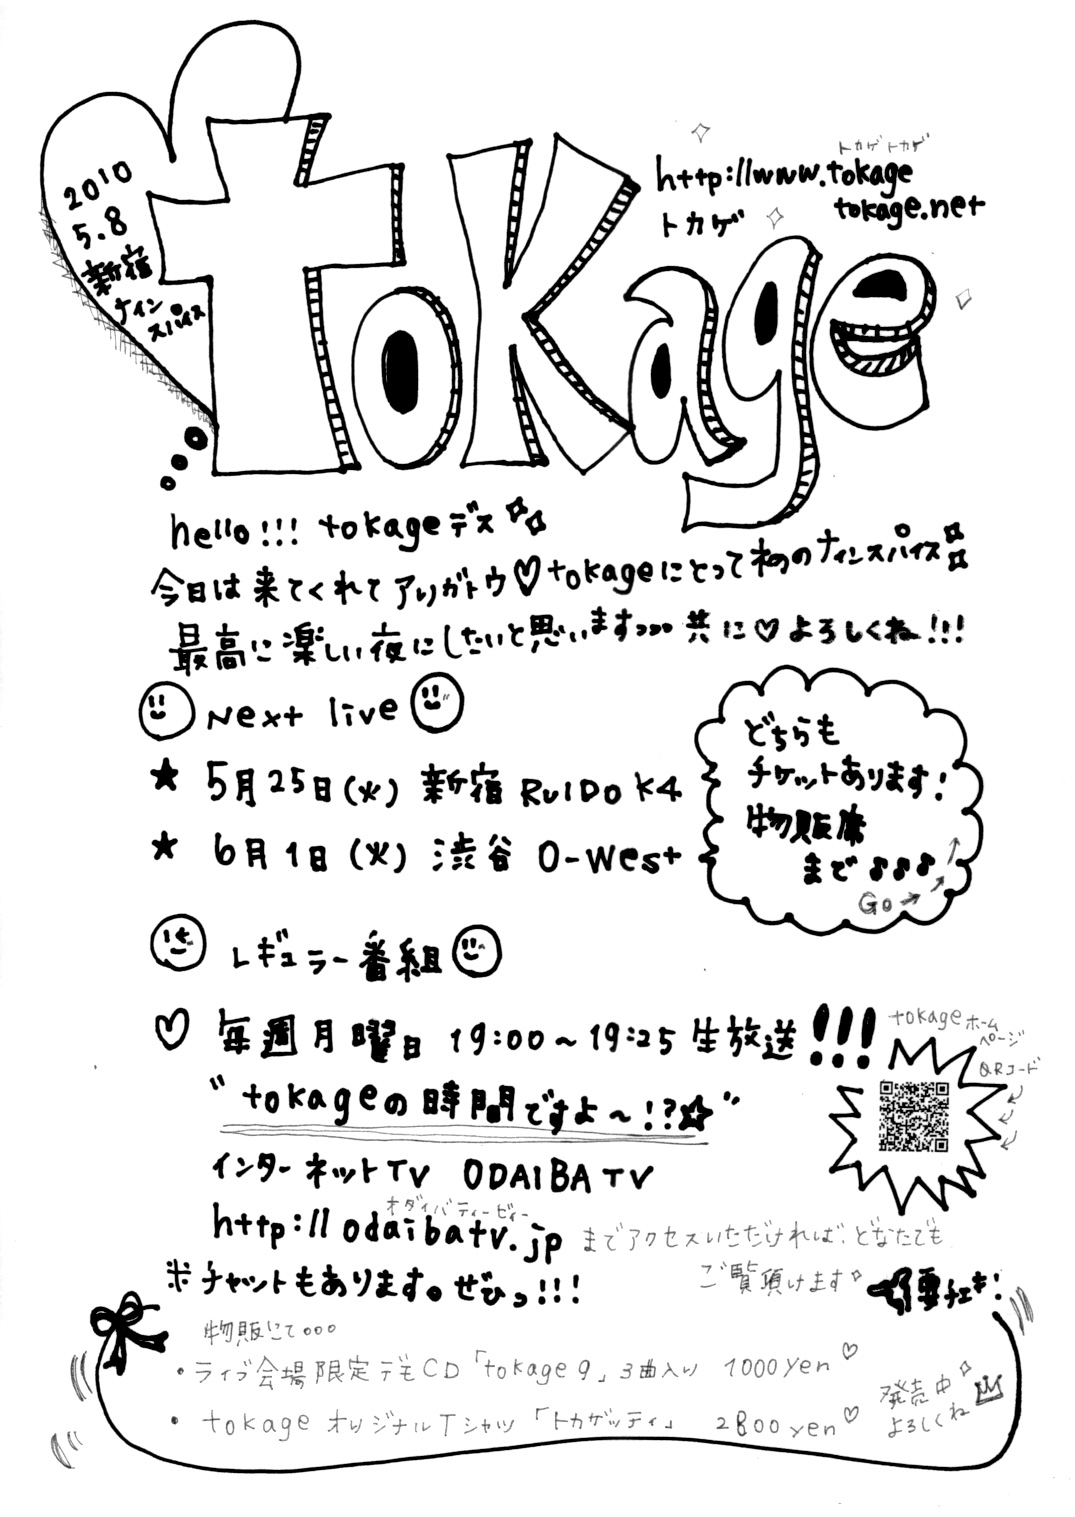 2010
5.8
新宿
ナイン
スパイス
tokage
トカゲトカゲ
http://www.tokage
tokage.net
トカゲ
hello!!! tokageデス
今日は来てくれてアリガトウ♡tokageにとって初のナインスパイス
最高に楽しい夜にしたいと思います 共に♡よろしくね!!!
Next live
★ 5月25日(火) 新宿 RUIDO K4
★ 6月1日(火) 渋谷 O-West
どちらも
チケットあります!
物販席
まで♪♪♪
Go→
レギュラー番組
♡ 毎週月曜日 19:00~19:25 生放送!!!
"tokageの時間ですよ~!?☆"
tokageホーム
ページ
QRコード
インターネットTV ODAIBA TV
オダイバティービィー
http://odaibatv.jp までアクセスいただければ、どなたでも
ご覧頂けます
※チャットもあります。ぜひっ!!!
要チェキ!
物販にて○○○
・ライブ会場限定デモCD「tokage9」3曲入り 1000yen♡
・tokage オリジナルTシャツ「トカゲッティ」 2800yen♡
発売中
よろしくね